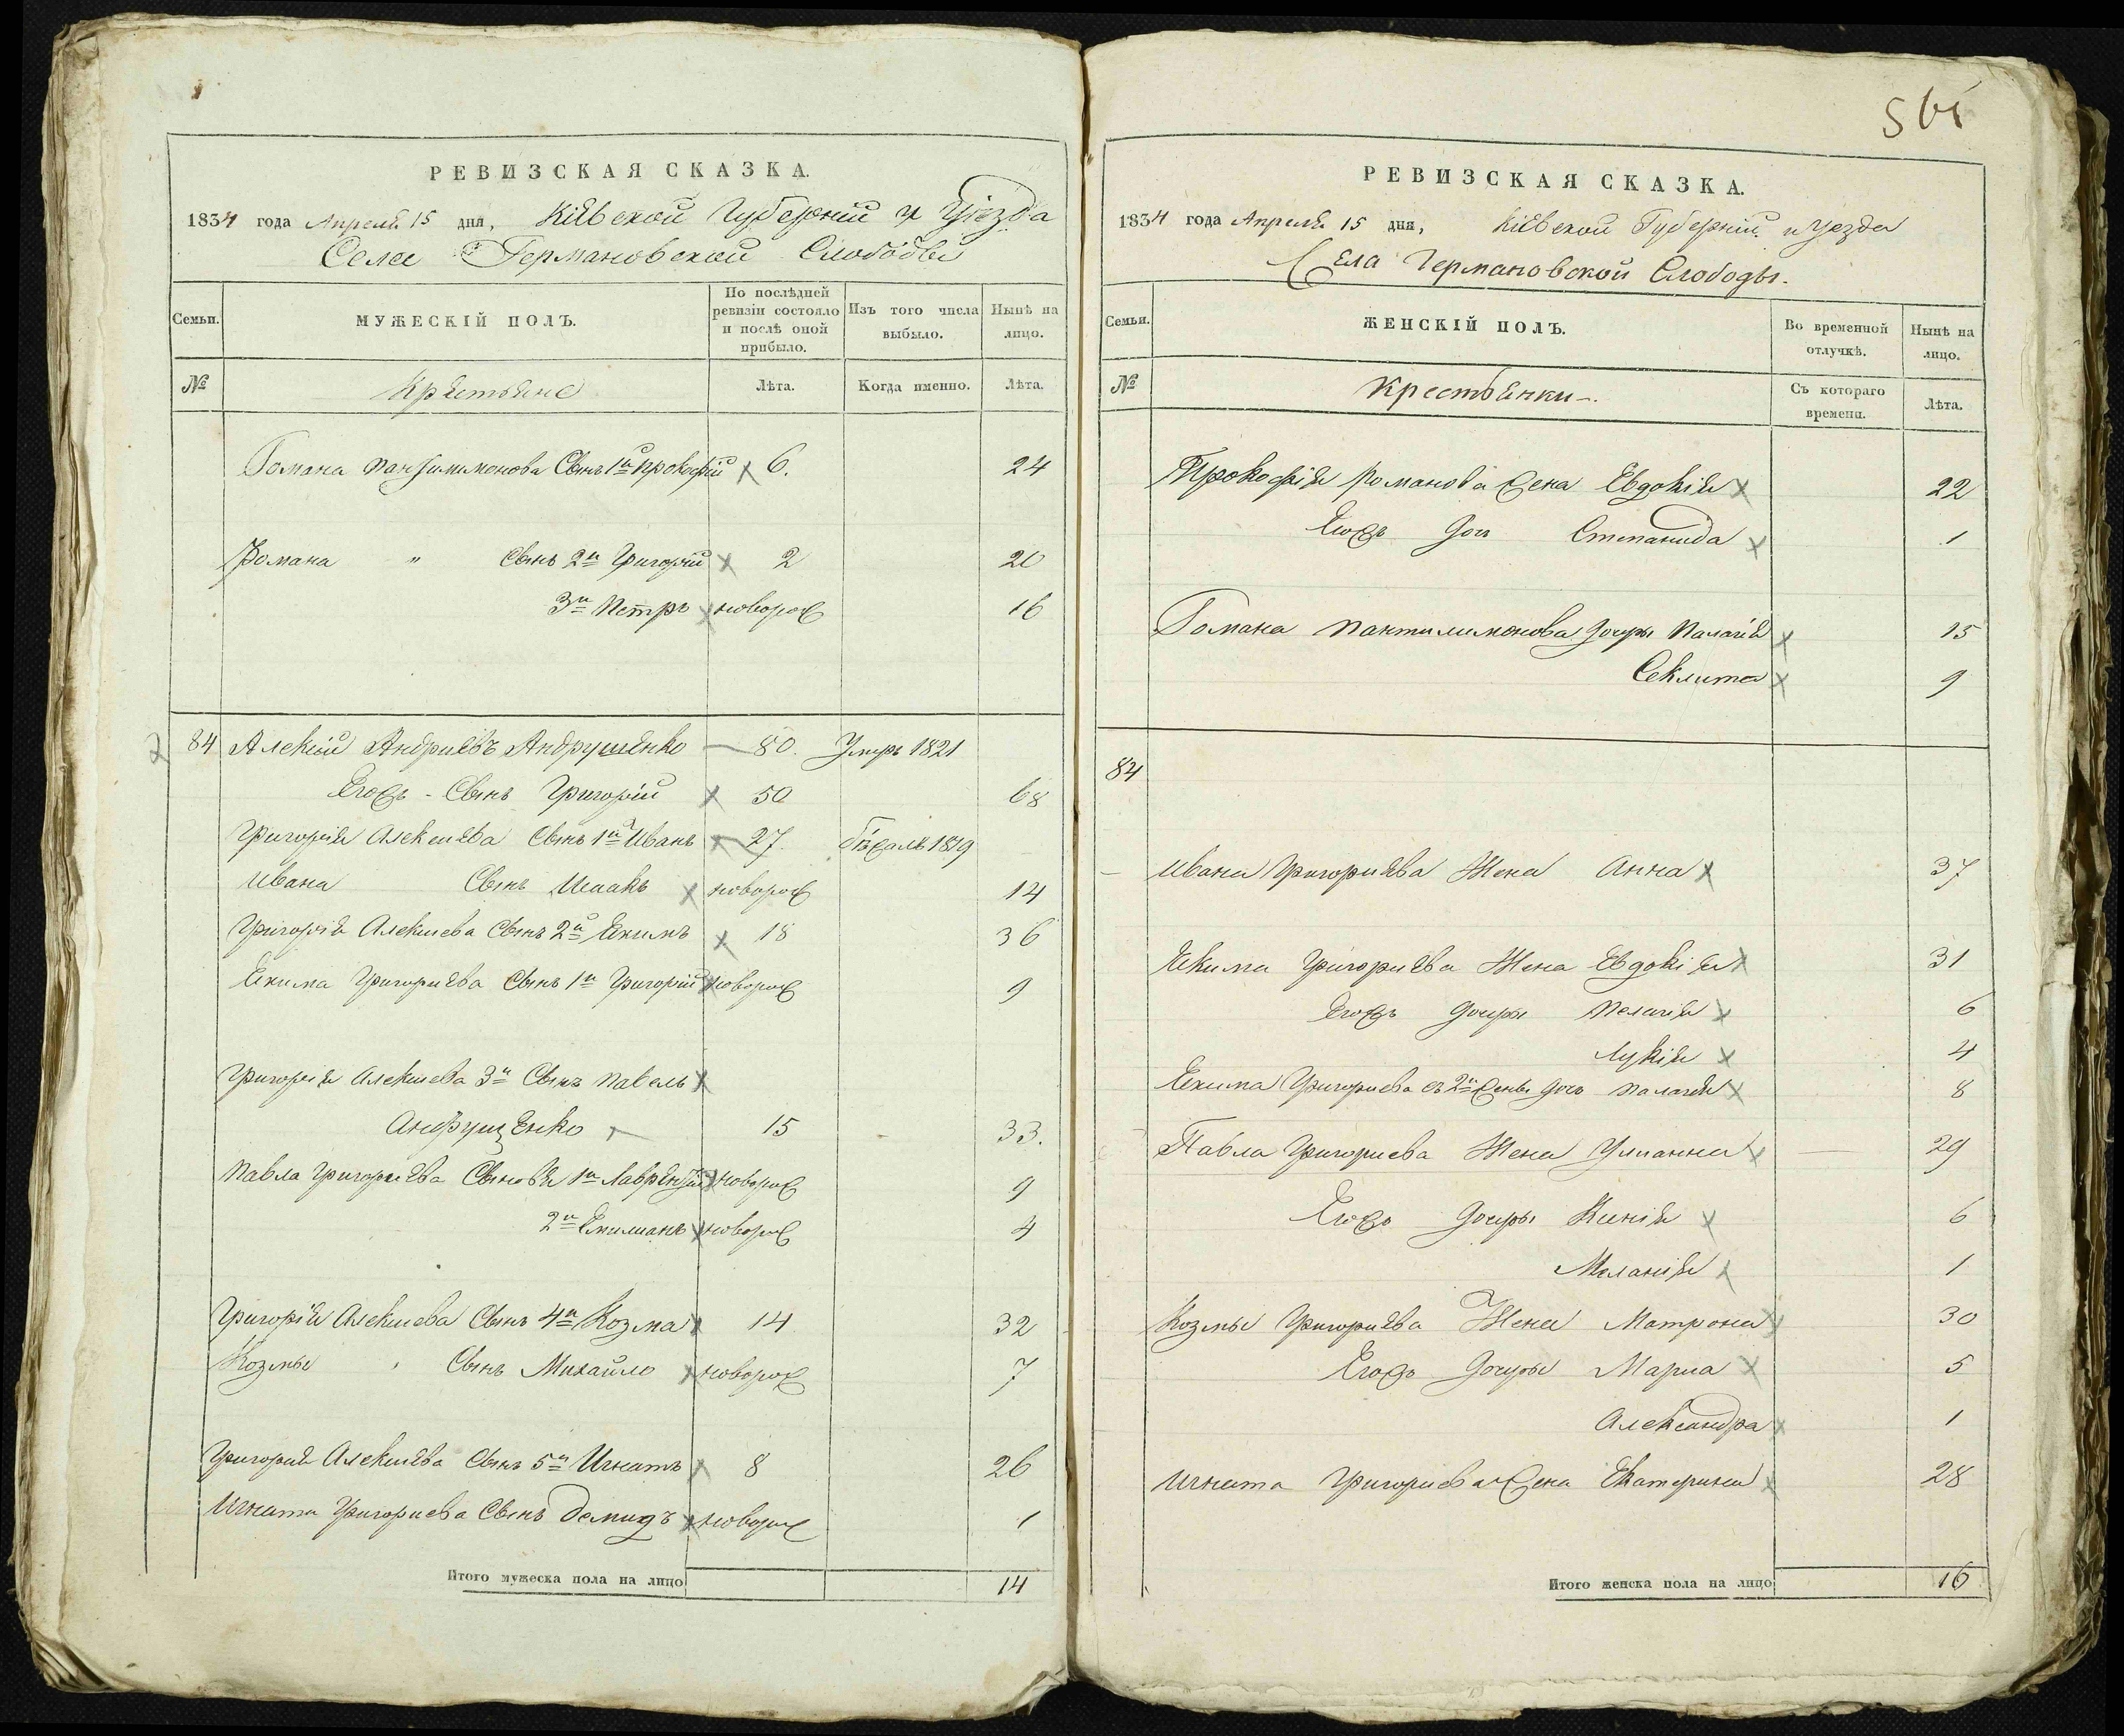 РЕВИЗСКАЯ СКАЗКА.
1834 года Апреля 15 дня, Кіевской Губерніи и Уезда
Села Германовской Слободы
Семьи. МУЖЕСКІЙ ПОЛЪ. По послѣдней ревизіи состояло и послѣ оной прибыло. Изъ того числа выбыло. Нынѣ на лицо.
№ Крестьяне Лѣта. Когда именно. Лѣта.
Романа Пантилимонова Сынъ 1й Прокофій 6. 24
Романа " Сынъ 2й Григорій 2 20
3й Петръ новорож 16
84 Алексій Андриевъ Андрущенко 80. Умеръ 1821
Егожъ - Сынъ Григорій 50 68
Григорія Алексиева Сынъ 1й Иванъ 27. бежалъ 1819
Ивана Сынъ Исаакъ новорож 14
Григорія Алексиева Сынъ 2й Екимъ 18 36
Екима Григориева Сынъ 1й Григорій новорож 9
Григорія Алексиева 3й Сынъ Павелъ
Андрущенко 15 33.
Павла Григориева Сыновья 1й Лаврентій новорож 9
2й Емилианъ новорож 4
Григорія Алексиева Сынъ 4й Козма 14 32
Козмы Сынъ Михайло новорож 7
Григорія Алексиева Сынъ 5й Игнатъ 8 26
Игната Григориева Сынъ Демидъ новорож 1
Итого мужеска пола на лицо 14
РЕВИЗСКАЯ СКАЗКА.
1834 года Апреля 15 дня, Кіевской Губерніи и Уезда
Села Германовской Слободы.
Семьи. ЖЕНСКІЙ ПОЛЪ. Во временной отлучкѣ. Нынѣ на лицо.
№ Крестьянки. Съ котораго времени. Лѣта.
Прокофія Романова жена Евдокія 22
Егожъ дочь Степанида 1
Романа Пантилимонова дочери Палагія 15
Секлита 9
84
Ивана Григориева Жена Анна 37
Екима Григориева Жена Евдокія 31
Егожъ дочери Пелагія 6
Лукія 4
Екима Григориева съ 2й жены дочь Палагія 8
Павла Григориева Жена Улианна 29
Егожъ дочери Ксенія 6
Меланія 1
Козмы Григориева Жена Матрона 30
Егожъ дочери Мариа 5
Александра 1
Игната Григориева жена Екатерина 28
Итого женска пола на лицо 16